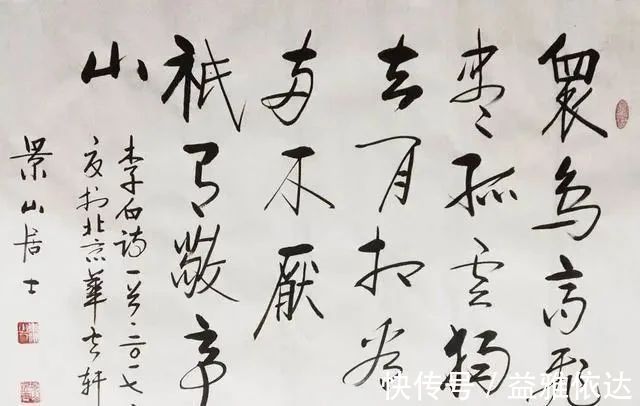 眾鳥高飛
盡孤雲獨
去閒相看
兩不厭
祇有敬亭
山
李白詩一首·二〇一七
夏於北京華軒
景山居士
快传号 / 益雅依达